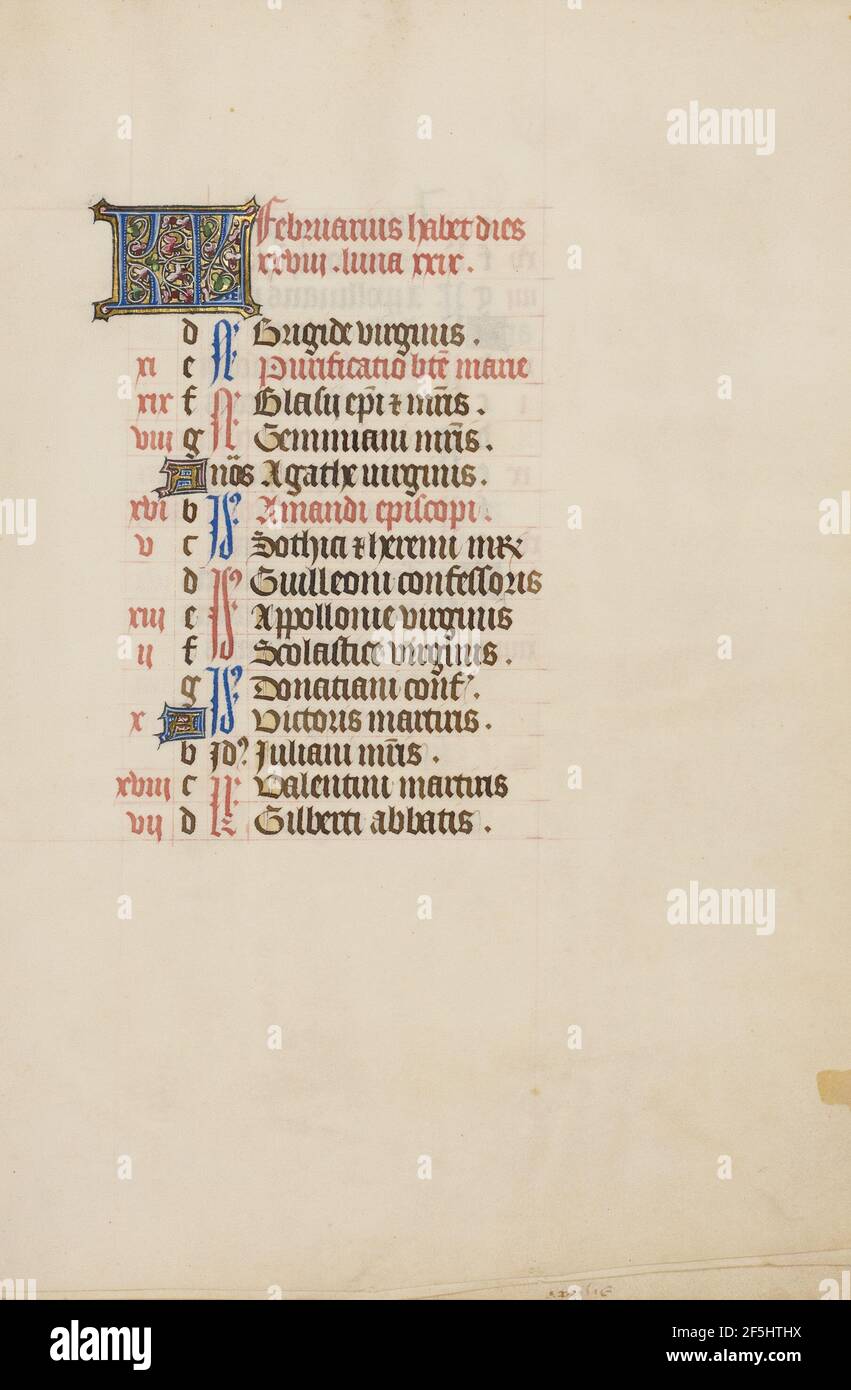 KL Februarius habet dies
xxviii . luna xxix .
d N̅ Brigide virginis .
xi e N̅ Purificatio bte̅ marie
xix f N̅ Blasij epi̅ ⁊ mr̅is .
viii g N̅ Geminiani mr̅is .
A no̅s Agathe virginis .
xvi b Amandi episcopi .
v c Sothici ⁊ herenei mr̅
d Guilleoni confessoris
xiii e Appollonie virginis
ii f Scolastice virginis .
g Donatiani conf .
x A Victoris martiris .
b Jd Juliani mr̅is .
xviii c Valentini martiris
vii d Gilberti abbatis .
alamy
Image ID: 2F5HTHX
www.alamy.com